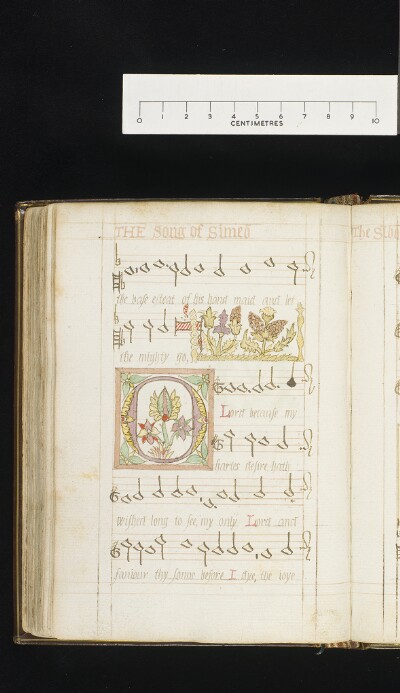 0 1 2 3 4 5 6 7 8 9 10
CENTIMETRES
THE Song of Simeō
the base esteat of his hand maid and let
the mighty go,
O
Lord because my
hartes desire hath
wished long to see, my only Lord and
saviour thy sonne before I dye, the ioye
The